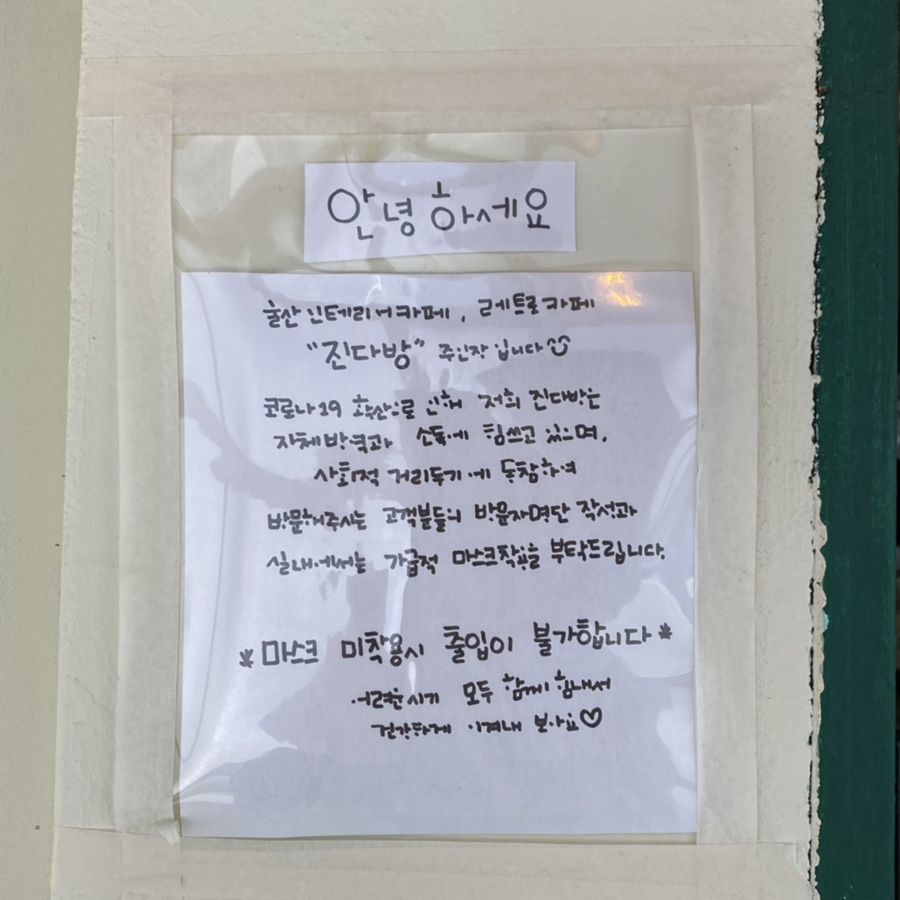 안녕하세요
울산 인테리어카페, 레트로카페
"진다방" 주인장입니다
코로나19 확산으로 인해 저희 진다방은
자체방역과 소독에 힘쓰고 있으며,
사회적 거리두기에 동참하여
방문해주시는 고객분들의 방문자명단 작성과
실내에서는 가급적 마스크착용을 부탁드립니다.
*마스크 미착용시 출입이 불가합니다*
어려운시기 모두 함께 힘내서
건강하게 이겨내 보아요♡